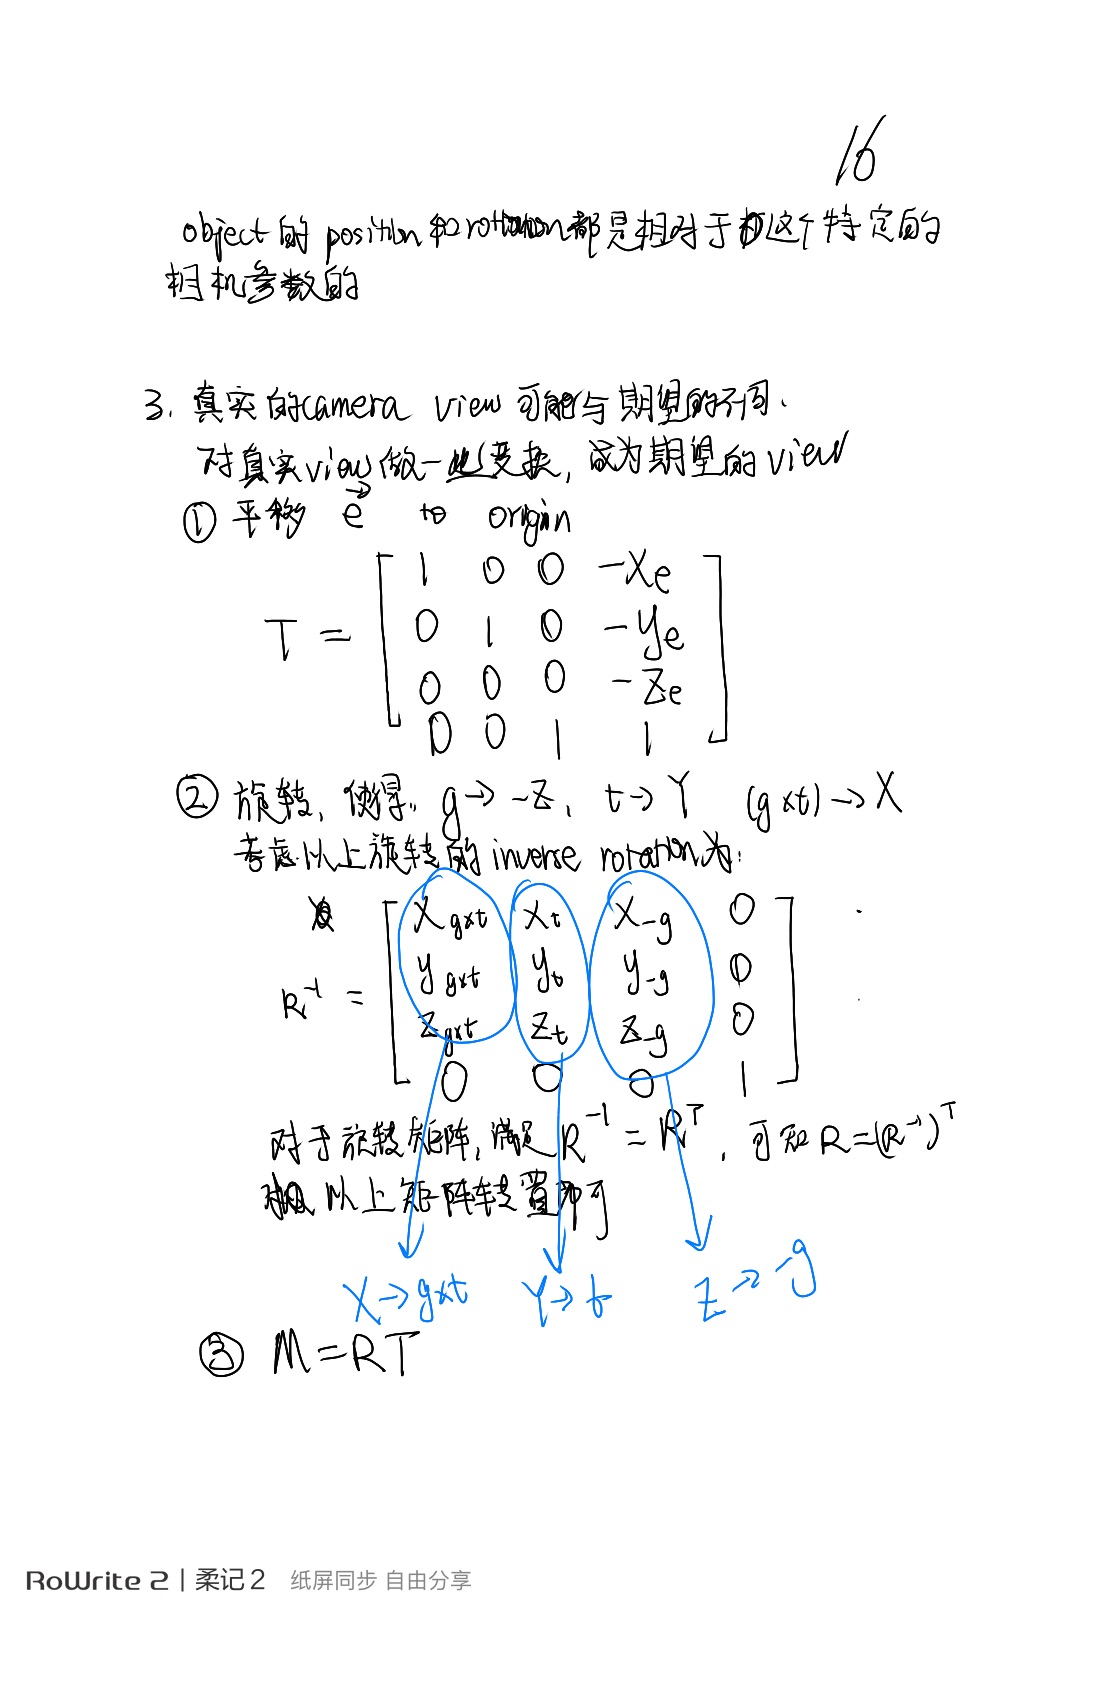 16
object的 position和rotation都是相对于这个特定的
相机参数的
3. 真实的camera view可能与期望的不同.
对真实view做一些变换, 成为期望的view
① 平移 e⃗ to origin
T = [ 1 0 0 -Xe
0 1 0 -Ye
0 0 0 -Ze
0 0 1 1 ]
② 旋转, 使得 g→-Z, t→Y (g×t)→X
考虑以上旋转的inverse rotation为:
R⁻¹ = [ X_g×t X_t X_-g 0
Y_g×t Y_t Y_-g 0
Z_g×t Z_t Z_-g 0
0 0 0 1 ]
对于旋转矩阵, 满足 R⁻¹ = Rᵀ, 可知 R=(R⁻¹)ᵀ
以上矩阵转置即可
X→g×t Y→t Z→-g
③ M=RT
RoWrite 2 | 柔记2 纸屏同步 自由分享